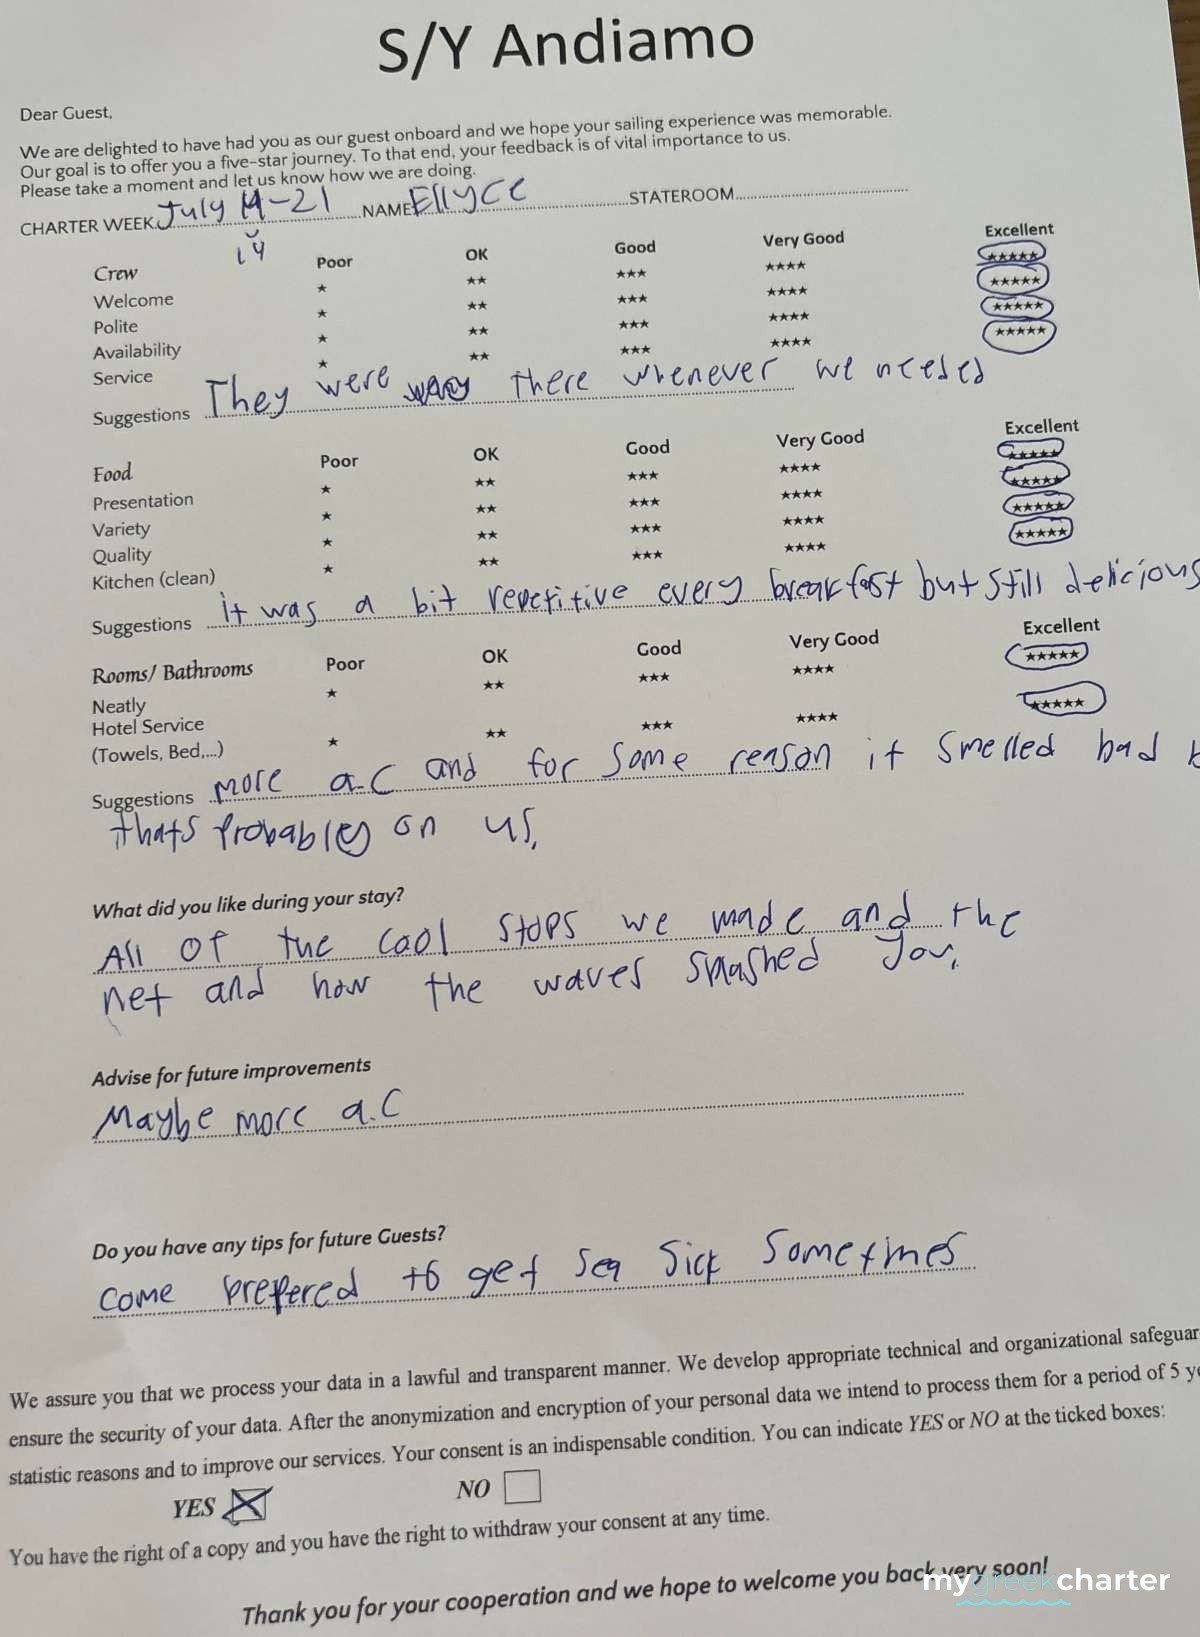 S/Y Andiamo
Dear Guest,
We are delighted to have had you as our guest onboard and we hope your sailing experience was memorable.
Our goal is to offer you a five-star journey. To that end, your feedback is of vital importance to us.
Please take a moment and let us know how we are doing.
CHARTER WEEK July 14-21 NAME Ellyce STATEROOM
14
Crew Poor OK Good Very Good Excellent
Welcome ★ ★★ ★★★ ★★★★ ★★★★★
Polite ★ ★★ ★★★ ★★★★ ★★★★★
Availability ★ ★★ ★★★ ★★★★ ★★★★★
Service ★ ★★ ★★★ ★★★★ ★★★★★
Suggestions They were there whenever we needed
Food Poor OK Good Very Good Excellent
Presentation ★ ★★ ★★★ ★★★★ ★★★★★
Variety ★ ★★ ★★★ ★★★★ ★★★★★
Quality ★ ★★ ★★★ ★★★★ ★★★★★
Kitchen (clean) ★ ★★ ★★★ ★★★★ ★★★★★
Suggestions it was a bit repetitive every breakfast but still delicious
Rooms/ Bathrooms Poor OK Good Very Good Excellent
Neatly ★ ★★ ★★★ ★★★★ ★★★★★
Hotel Service
(Towels, Bed,...) ★ ★★ ★★★ ★★★★ ★★★★★
Suggestions more a.c and for some reason it smelled bad
thats probably on us.
What did you like during your stay?
All of the cool stops we made and the
net and how the waves splashed you.
Advise for future improvements
Maybe more a.c
Do you have any tips for future Guests?
come prepered to get sea sick sometimes
We assure you that we process your data in a lawful and transparent manner. We develop appropriate technical and organizational safeguar
ensure the security of your data. After the anonymization and encryption of your personal data we intend to process them for a period of 5 ye
statistic reasons and to improve our services. Your consent is an indispensable condition. You can indicate YES or NO at the ticked boxes:
YES NO
You have the right of a copy and you have the right to withdraw your consent at any time.
Thank you for your cooperation and we hope to welcome you back very soon!
mygreekcharter